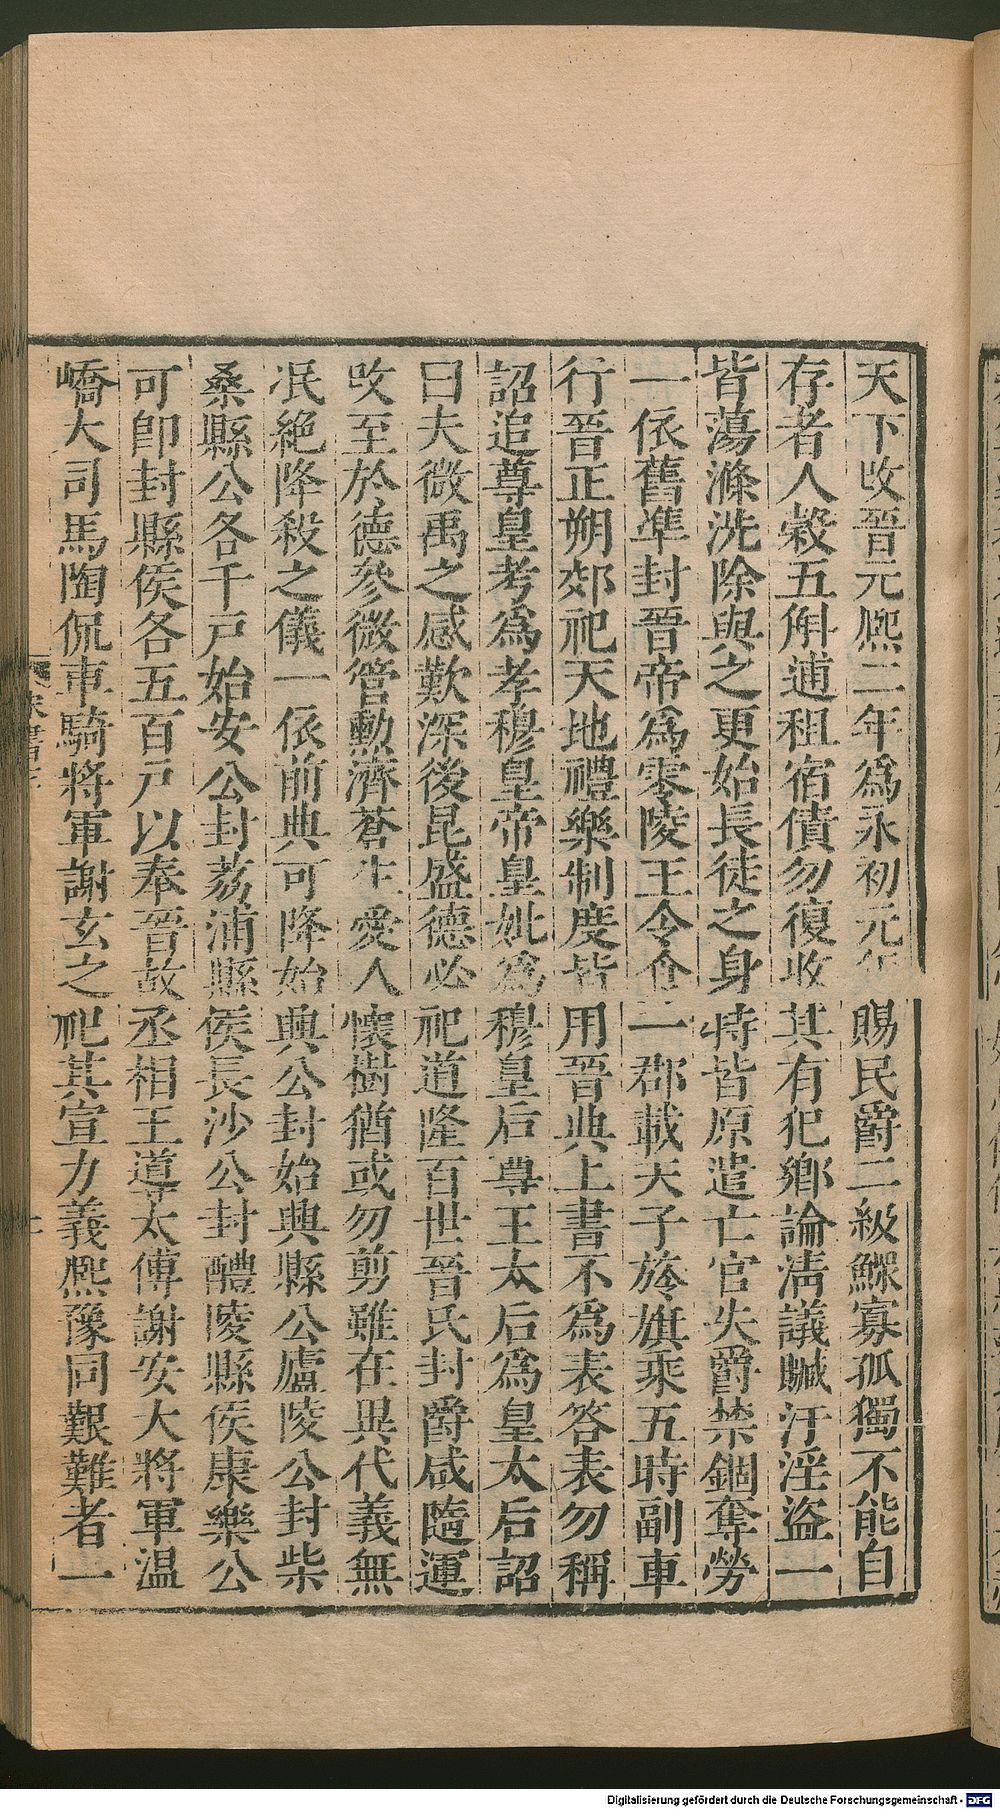 天下改晉元熈二年爲永初元年賜民爵二級鰥寡孤獨不能自
存者人榖五斛逋租宿債勿復收其有犯鄉論淸議贓汙淫盜一
皆蕩滌洗除與之更始長徒之身特皆原遣亡官失爵禁錮奪勞
一依舊準封晉帝爲零陵王令食一郡載天子旌旗乘五時副車
行晉正朔郊祀天地禮樂制度皆用晉典上書不爲表答表勿稱
詔追尊皇考爲孝穆皇帝皇妣爲穆皇后尊王太后爲皇太后詔
曰夫微禹之感歎深後昆盛德必祀道隆百世晉氏封爵咸隨運
改至於德參微管勳濟蒼生愛人懷樹猶或勿剪雖在異代義無
泯絕降殺之儀一依前典可降始興公封始興縣公廬陵公封柴
桑縣公各千戸始安公封荔浦縣侯長沙公封醴陵縣侯康樂公
可卽封縣侯各五百戸以奉晉故丞相王導太傅謝安大將軍温
嶠大司馬陶侃車騎將軍謝玄之祀其宣力義熈豫同艱難者一
Digitalisierung gefördert durch die Deutsche Forschungsgemeinschaft - DFG